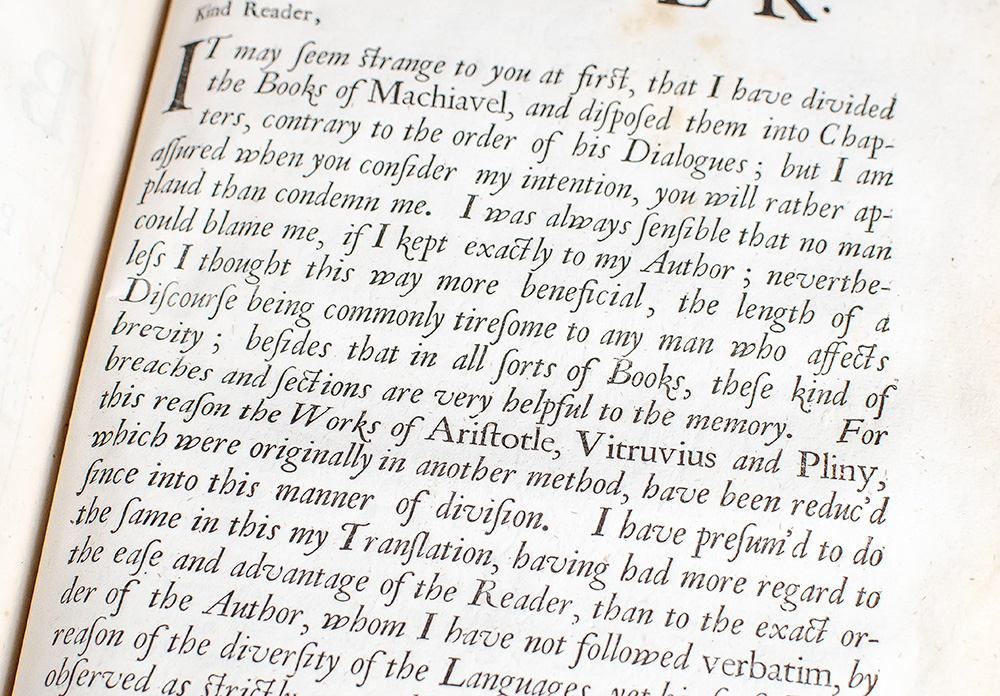 Kind Reader,
IT may ſeem ſtrange to you at firſt, that I have divided
the Books of Machiavel, and diſpoſed them into Chap-
ters, contrary to the order of his Dialogues; but I am
aſſured when you conſider my intention, you will rather ap-
plaud than condemn me. I was always ſenſible that no man
could blame me, if I kept exactly to my Author; neverthe-
leſs I thought this way more beneficial, the length of a
Diſcourſe being commonly tireſome to any man who affects
brevity; beſides that in all ſorts of Books, theſe kind of
breaches and ſections are very helpful to the memory. For
this reaſon the Works of Ariſtotle, Vitruvius and Pliny,
which were originally in another method, have been reduc'd
ſince into this manner of diviſion. I have preſum'd to do
the ſame in this my Tranſlation, having had more regard to
the eaſe and advantage of the Reader, than to the exact or-
der of the Author, whom I have not followed verbatim, by
reaſon of the diverſity of the Languages, yet
obſerved as ſtrictly